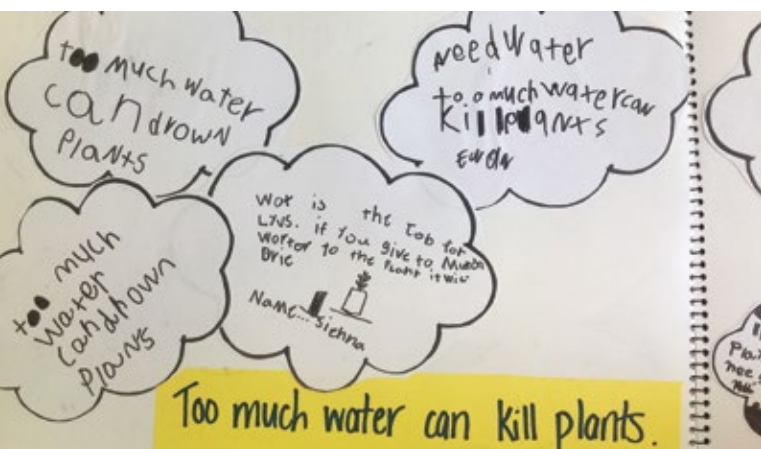 too much water
can drown
Plants
need Water
too much water can
kill plants
too much
water
can drown
Plants
wot is the Job for
if You give to Much
worter to the Plant it wil
Name... Sienna
Too much water can kill plants.
Pla
nee